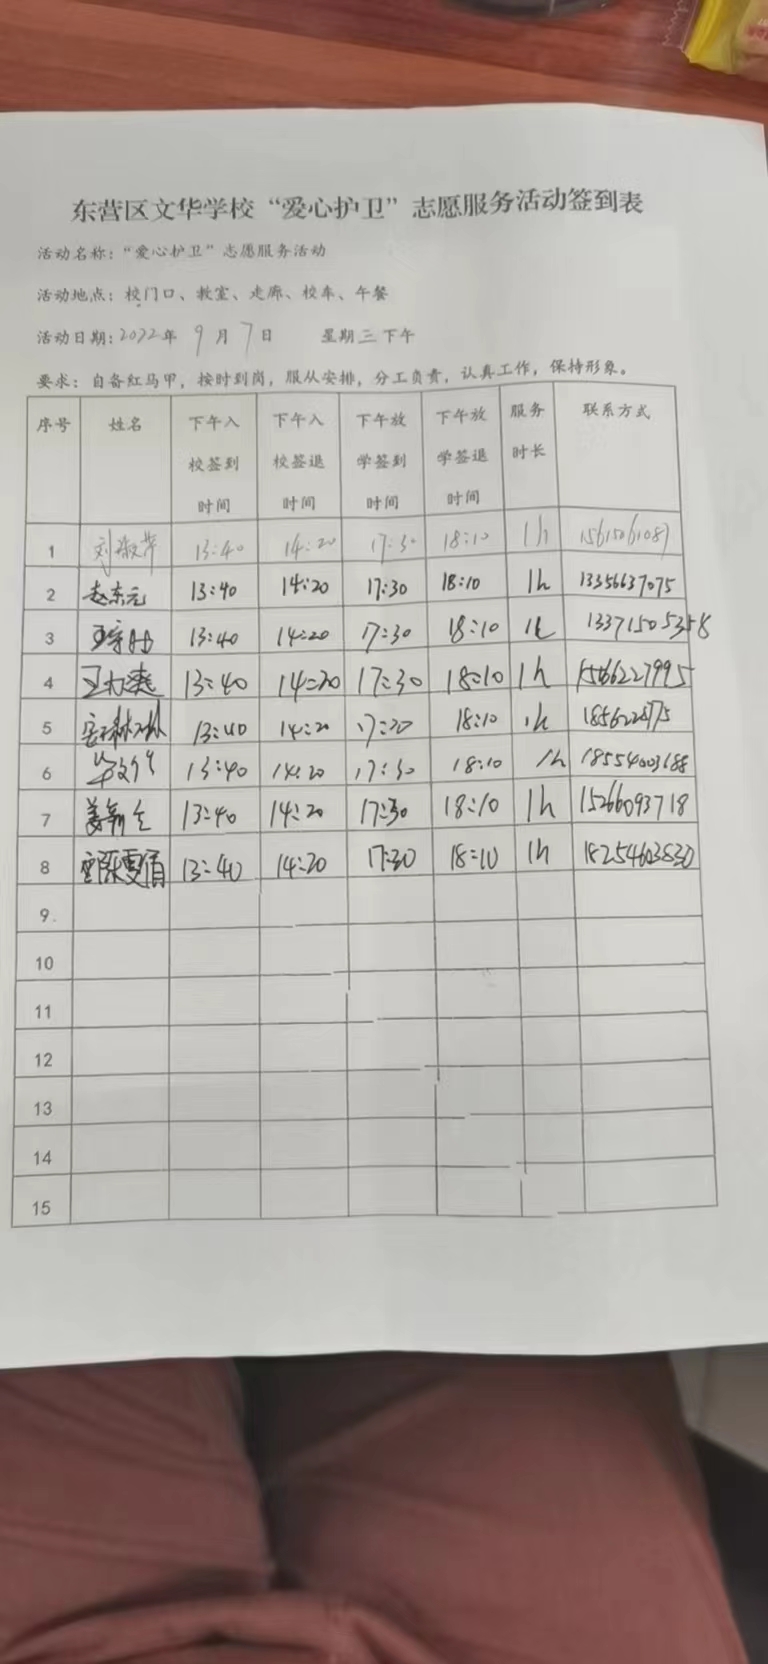 东营区文华学校“爱心护卫”志愿服务活动签到表
活动名称：“爱心护卫”志愿服务活动
活动地点：校门口、教室、走廊、校车、午餐
活动日期：2022年 9月7日 星期三下午
要求：自备红马甲，按时到岗，服从安排，分工负责，认真工作，保持形象。
序号 姓名 下午入校签到时间 下午入校签退时间 下午放学签到时间 下午放学签退时间 服务时长 联系方式
1 13:40 14:20 17:30 18:10 1h 15615061089
2 赵东元 13:40 14:20 17:30 18:10 1h 13356637075
3 13:40 14:20 17:30 18:10 1h 13371505358
4 13:40 14:20 17:30 18:10 1h 15066227995
5 13:40 14:20 17:30 18:10 1h
6 13:40 14:20 17:30 18:10 1h 18554003688
7 13:40 14:20 17:30 18:10 1h 15266093718
8 13:40 14:20 17:30 18:10 1h 18254603830
9
10
11
12
13
14
15